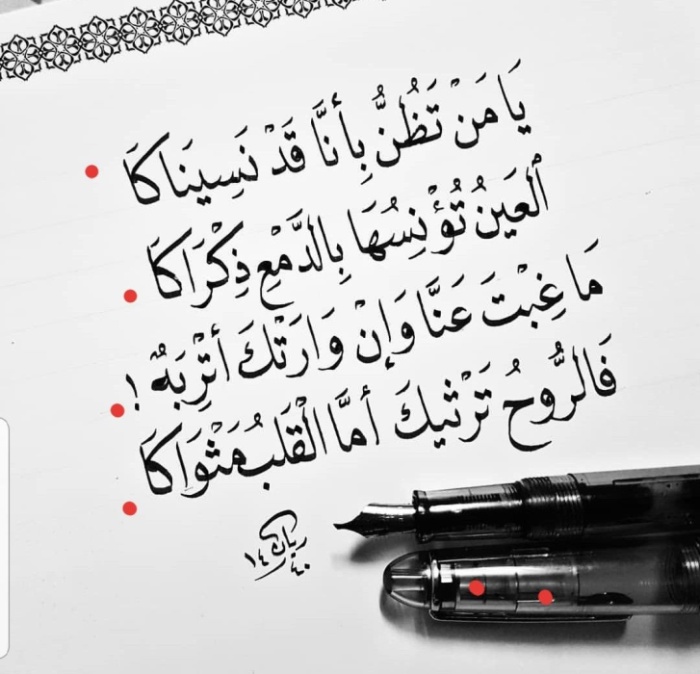 يَا مَنْ تَظُنُّ بِأَنَّا قَدْ نَسِينَاكَا
اَلْعَيْنُ تُؤْنِسُهَا بِالدَّمْعِ ذِكْرَاكَا
مَا غِبْتَ عَنَّا وَإِنْ وَارَتْكَ أَتْرِبَةٌ !
فَالرُّوحُ تَرْثِيكَ أَمَّا الْقَلْبُ مَثْوَاكَا